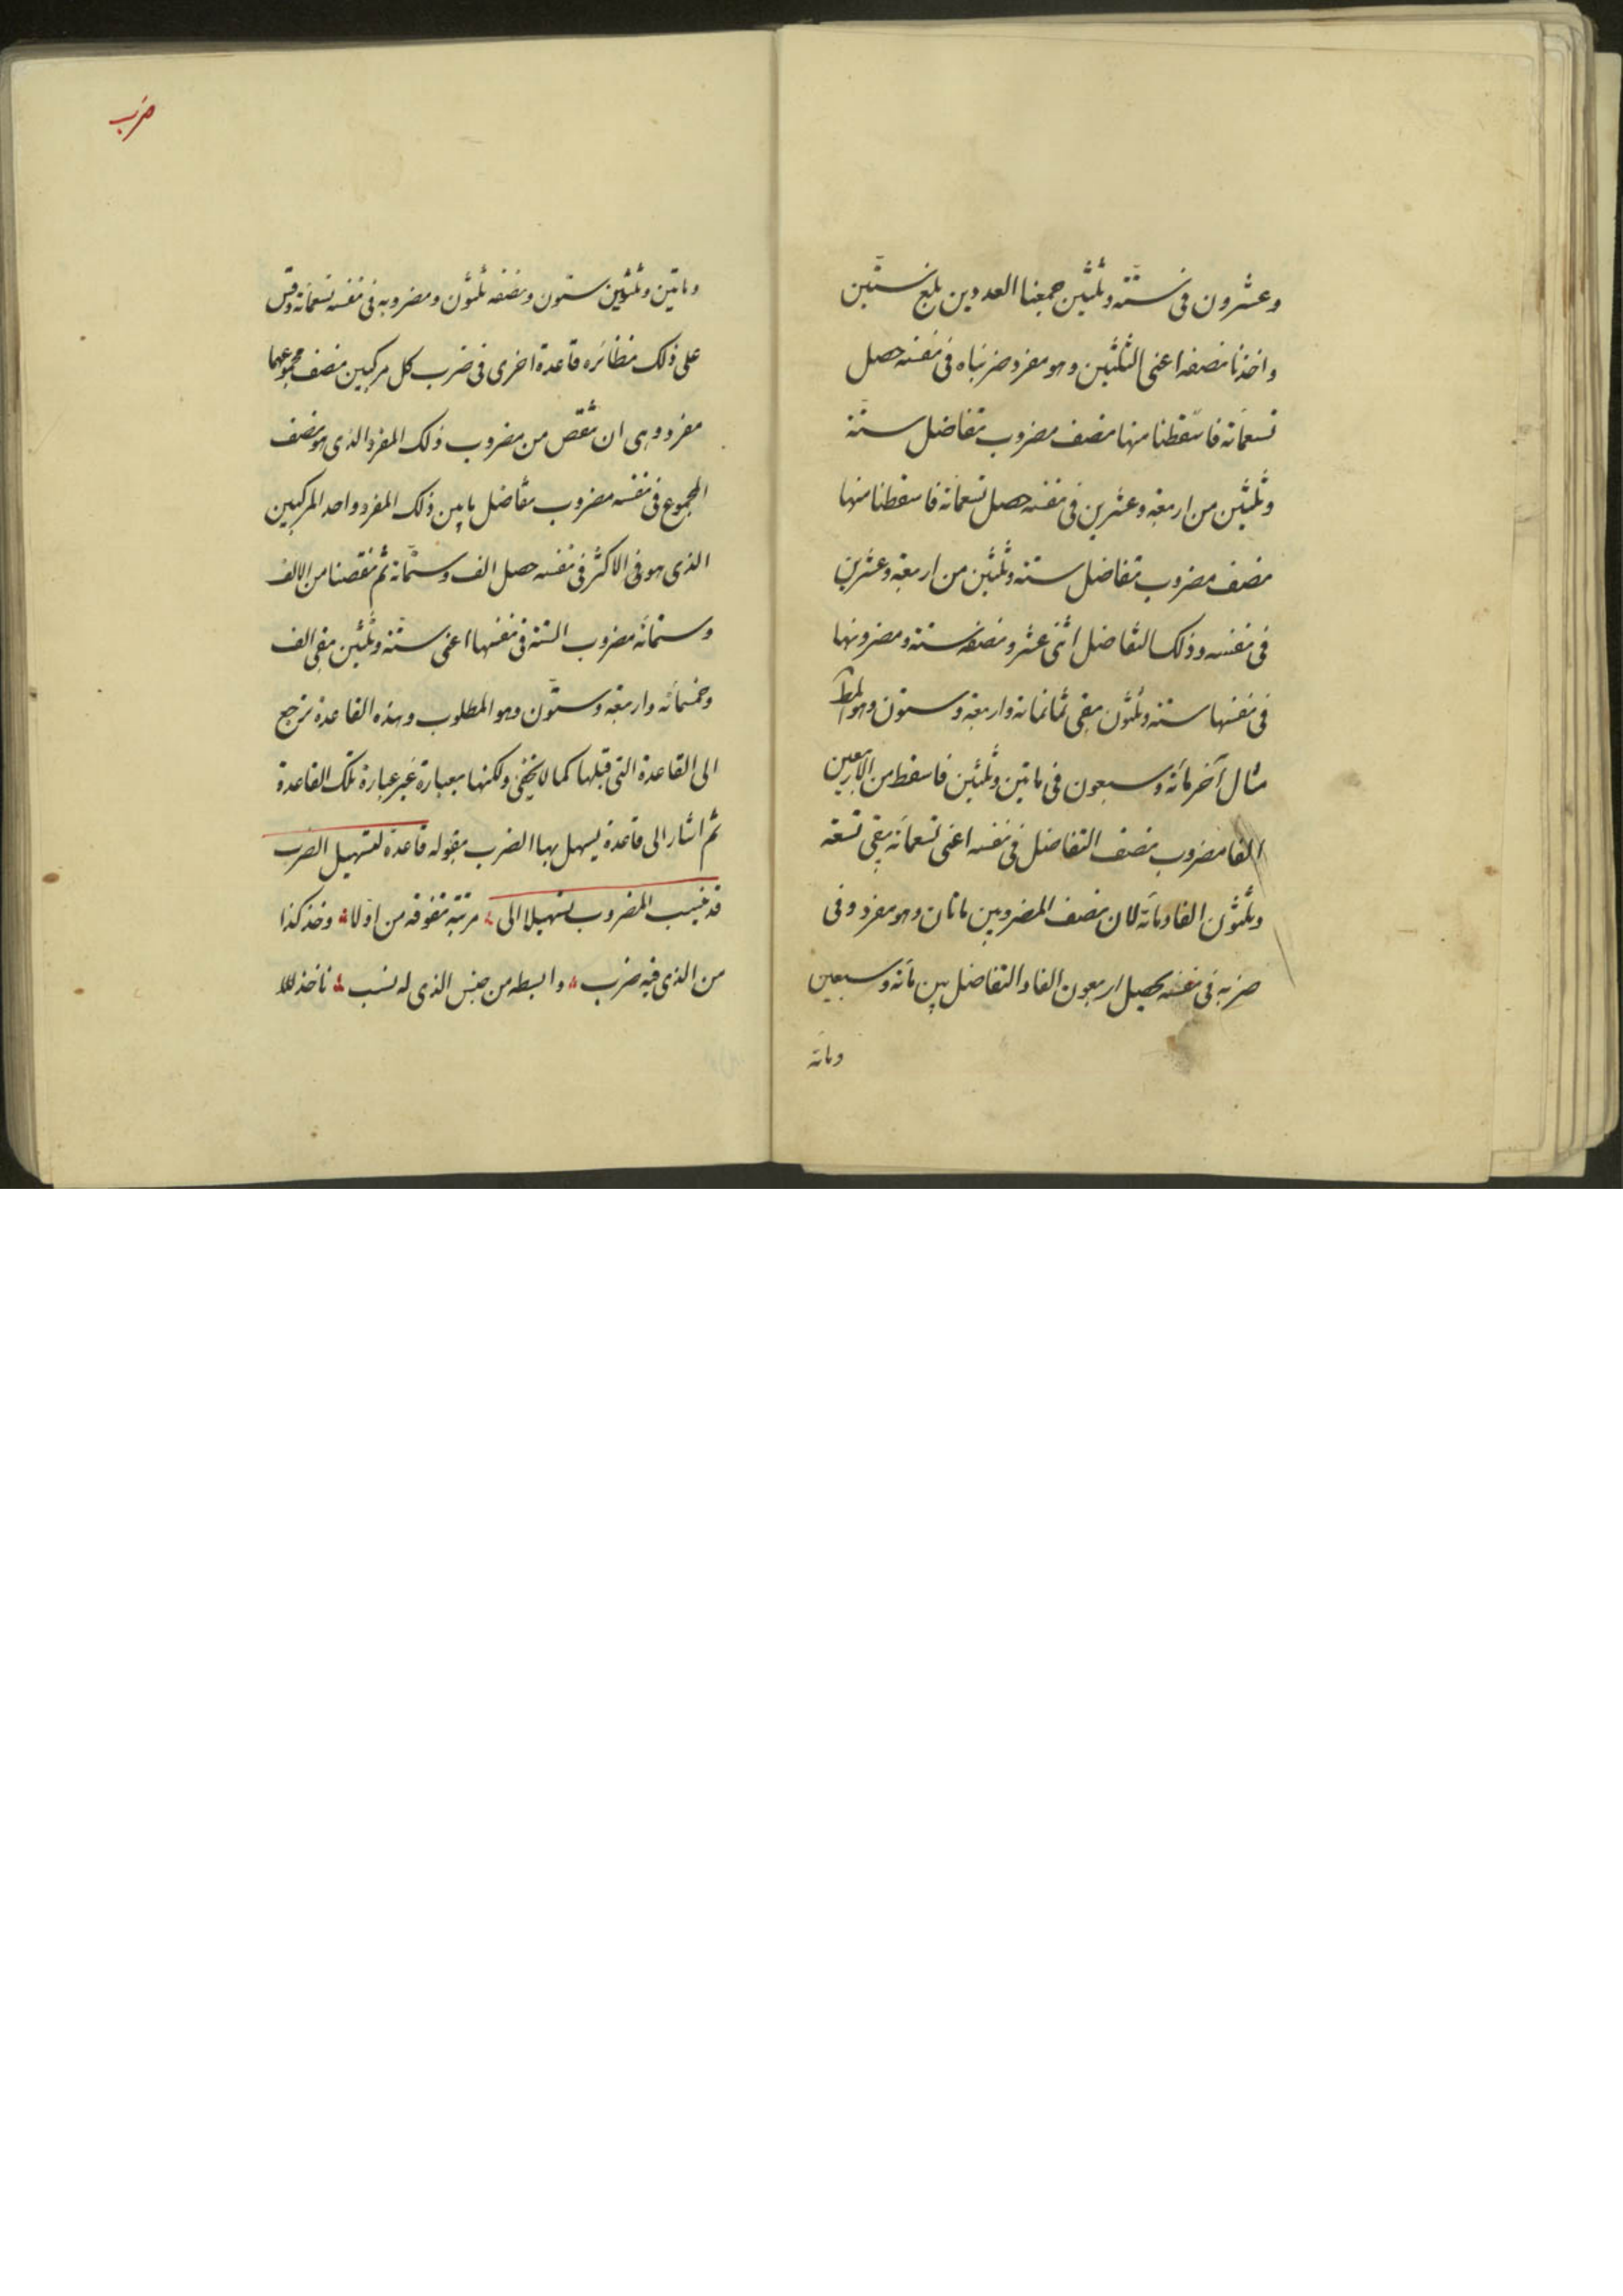 وعشرون فى ستّة وثلثين جمعنا العددين بلغ ستّين
واخذنا نصفه اعنى الثلثين وهو مفرد ضربناه فى نفسه حصل
تسعمائة فاسقطنا منها نصف مضروب تفاضل ستة
وثلثين من اربعة وعشرين فى نفسه حصل تسعمائة فاسقطنا منها
نصف مضروب تفاضل ستة وثلثين من اربعة وعشرين
فى نفسه وذلك التفاضل اثنى عشر ونصفه ستة ومضروبها
فى نفسها ستة وثلثون بقى ثمانمائة واربعة وستون وهو المط
مثال آخر مائة وسبعون فى مائتين وثلثين فاسقط من الاربعين
الفا مضروب نصف التفاضل فى نفسه اعنى تسعمائة يبقى تسعة
وثلثون الفا ومائة لان نصف المضروبين مائتان وهو مفرد وفى
ضربه فى نفسه يحصل اربعون الفا والتفاضل بين مائة وسبعين
ومائة
ضرب
ومائتين وثلثين ستون ونصفه ثلثون ومضروبه فى نفسه تسعمائة وقس
على ذلك نظائره قاعدة اخرى فى ضرب كل مركبين نصف مجموعهما
مفرد وهى ان تنقص من مضروب ذلك المفرد الذى هو نصف
المجموع فى نفسه مضروب تفاضل ما بين ذلك المفرد واحد المركبين
الذى هو فى الاكثر فى نفسه حصل الف وستمائة ثم نقصنا من الالف
وستمائة مضروب الستة فى نفسها اعنى ستة وثلثين بقى الف
وخمسمائة واربعة وستّون وهو المطلوب وهذه القاعدة ترجع
الى القاعدة التى قبلها كما لا يخفى ولكنها بعبارة غير عبارة تلك القاعدة
ثم اشار الى قاعدة يسهل بها الضرب بقوله قاعدة لتسهيل الضرب
قد ينسب المضروب تسهيلا الى مرتبة تفوقه من اوّلا وخذ كذا
من الذى فيه ضرب وابسطه من جنس الذى له نسب تاخذ